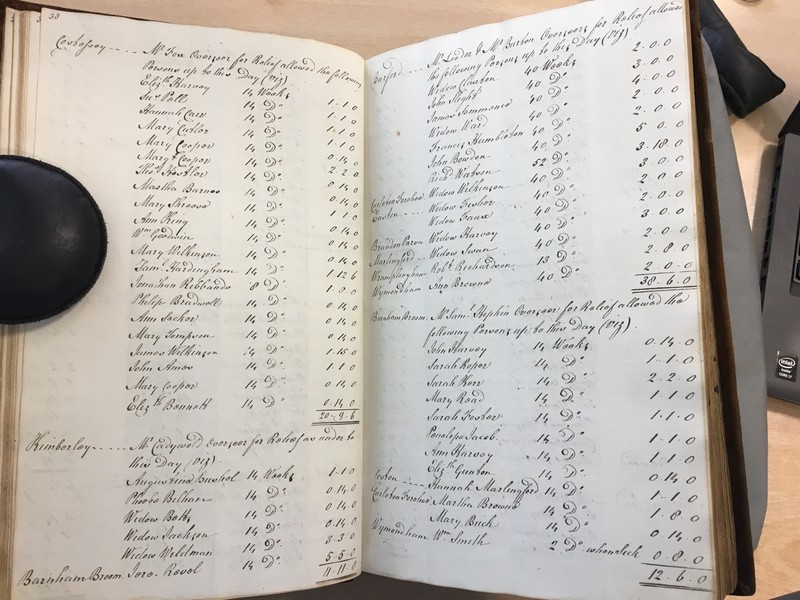 38
Costossey ---- Mr. Fox Overseer for Relief allowed the following
Persons up to this Day (viz)
Elizth. Harvey 14 Weeks 1-1-0
Susn. Pall 14 Do. 1-1-0
Hannah Carr 14 Do. 1-1-0
Mary Castor 14 Do. 1-1-0
Mary Cooper 14 Do. 0-14-0
Maryt. Cooper 14 Do. 2-2-0
Thos. 14 Do. 0-14-0
Martha Barnes 14 Do. 0-14-0
Mary Shreeve 14 Do. 1-1-0
Ann King 14 Do. 0-14-0
Wm. Goodwin 14 Do. 0-14-0
Mary Wilkinson 14 Do. 0-14-0
Saml. Hardingham 14 Do. 1-12-6
Jonathan 8 Do. 1-0-0
Philip Bradwell 14 Do. 0-14-0
Ann 14 Do. 0-14-0
Mary Tompson 14 Do. 0-14-0
James Wilkinson 14 Do. 1-15-0
John Amos 14 Do. 1-1-0
Mary Cooper 14 Do. 0-14-0
Elizth. Bennett 14 Do. 0-14-0
20-9-6
Kimberley ---- Mr. Cadywold Overseer for Relief as under to
this Day (viz)
Augustine Bushel 14 Weeks 1-1-0
Phoebe Belham 14 Do. 0-14-0
Widow Botts 14 Do. 0-14-0
Widow Jackson 14 Do. 0-14-0
Widow Weldman 14 Do. 3-3-0
Barnham Broom Jere. Revel 14 Do. 5-5-0
11-11-0
Barford ---- Mr. Leeder & Mr. Barton Overseers for Relief allowed
the following Persons up to this Day (viz)
Widow Claxton 40 Weeks 2-0-0
John Slight 40 Do. 3-0-0
James Simmonds 40 Do. 4-0-0
Widow Ward 40 Do. 2-0-0
Francis Hambleton 40 Do. 2-0-0
John Bowden 40 Do. 5-0-0
Richd. Watson 52 Do. 3-18-0
Widow Wilkinson 40 Do. 3-0-0
Carleton Forehoe Widow Foster 40 Do. 2-0-0
Easton ---- Widow Faux 40 Do. 2-0-0
Widow Harvey 40 Do. 3-0-0
Brandon Parva Widow Swan 40 Do. 2-0-0
Marlingford -- Robt. Richardson 13 Do. 2-8-0
Wramplingham Ann Browne 40 Do. 2-0-0
Wymondham
38-6-0
Barnham Broom Mr. Saml. Overseer for Relief allowed the
following Persons up to this Day (viz)
John Harvey 14 Weeks 0-14-0
Sarah Roper 14 Do. 1-1-0
Sarah Kerr 14 Do. 2-2-0
Mary Read 14 Do. 1-1-0
Sarah Foster 14 Do. 1-1-0
Penelope Jacob 14 Do. 1-1-0
Ann Harvey 14 Do. 1-1-0
Elizth. Gunton 14 Do. 0-14-0
Coston ---- Hannah Marlingford 14 Do. 1-1-0
Carleton Forehoe Martha Browne 14 Do. 1-8-0
Mary Buck 14 Do. 0-14-0
Wymondham Wm. Smith 2 Do. when sick 0-8-0
12-6-0
intel
CORE i7